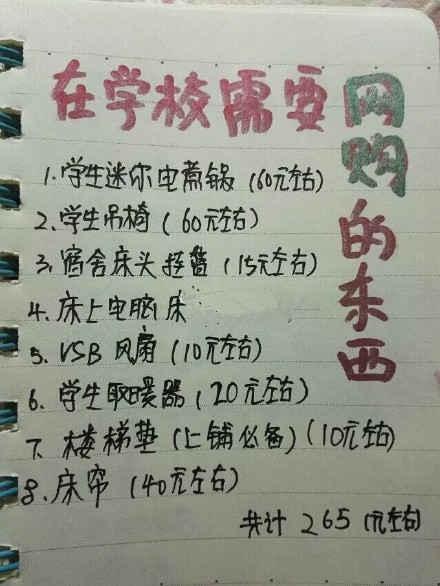 在学校需要网购的东西
1.学生迷你电煮锅(60元左右)
2.学生吊椅(60元左右)
3.宿舍床头挂篮(15元左右)
4.床上电脑床
5.VSB风扇(10元左右)
6.学生取暖器(20元左右)
7.楼梯垫(上铺必备)(10元左右)
8.床帘(40元左右)
共计265(元左右)